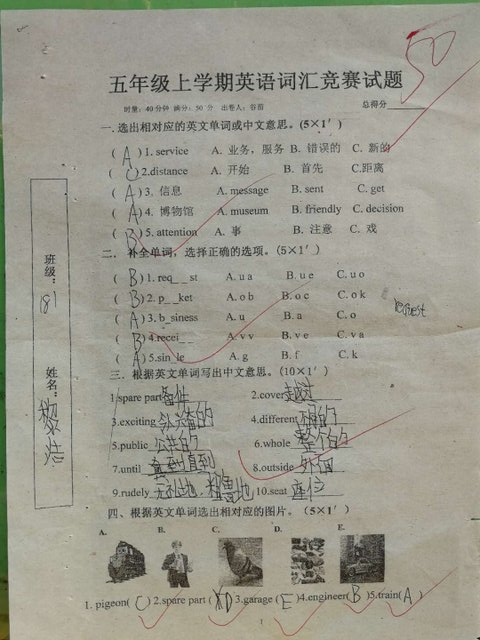 50
五年级上学期英语词汇竞赛试题
时量：40分钟 满分：50 分 出卷人：谷蓓 总得分
一.选出相对应的英文单词或中文意思。(5×1′)
( A ) 1. service A. 业务，服务 B. 错误的 C. 新的
( C ) 2.distance A. 开始 B. 首先 C.距离
( A ) 3. 信息 A. message B. sent C. get
( A ) 4. 博物馆 A. museum B. friendly C. decision
( B ) 5. attention A. 事 B. 注意 C. 戏
二. 补全单词，选择正确的选项。(5×1′)
( B ) 1. req__st A. u a B. u e C. u o
( B ) 2. p__ket A. o b B. o c C. o k
request
( A ) 3. b_siness A. u B. a C. o
( B ) 4.recei__ A. v v B. v e C. v a
( A ) 5.sin_le A. g B. f C. k
三. 根据英文单词写出中文意思。(10×1′)
1.spare part 备件 2.cover 越过
3.exciting 令人兴奋的 4.different 不同的
5.public 公共的 6.whole 整个的
7.until 直到 8.outside 外面
9.rudely 无礼地，粗鲁地 10.seat 座位
四、根据英文单词选出相对应的图片。(5×1′)
A. B. C. D. E.
1. pigeon( C ) 2.spare part ( D ) 3.garage ( E ) 4.engineer( B ) 5.train( A )
1
班级：181
姓名：黎浩